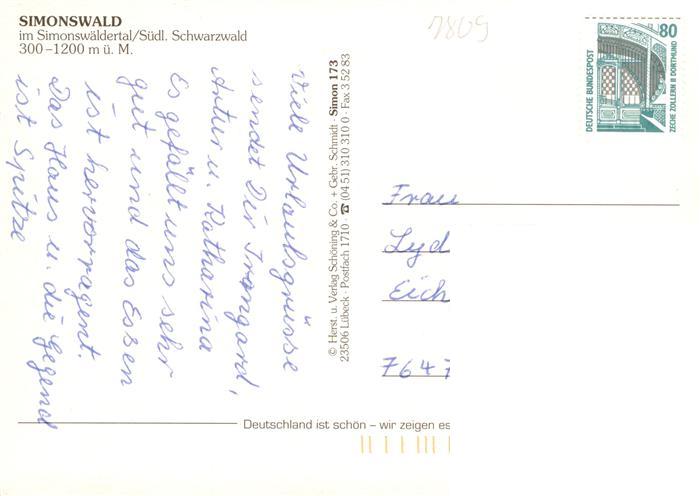 SIMONSWALD
im Simonswäldertal/Südl. Schwarzwald
300–1200 m ü. M.
1809
Viele Urlaubsgrüsse
sendet Dir Irmgard,
Artur u. Katharina
Es gefällt uns sehr
gut und das Essen
ist hervorragent.
Das Haus u. die Gegend
ist Spitze
© Herst. u. Verlag Schöning & Co. + Gebr. Schmidt · Simon 173
23506 Lübeck · Postfach 1710 · ☎ (04 51) 310 310 0 · Fax 3 52 83
80
DEUTSCHE BUNDESPOST
ZECHE ZOLLERN II DORTMUND
Frau
Lyd
Eich
7647
Deutschland ist schön – wir zeigen es